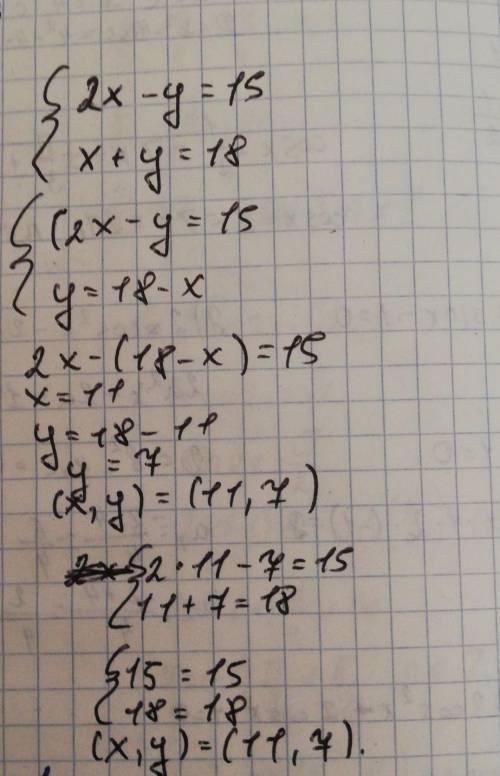 2x - y = 15
x + y = 18
(2x - y = 15
y = 18 - x
2x - (18 - x) = 15
x = 11
y = 18 - 11
y = 7
(x, y) = (11, 7)
2 · 11 - 7 = 15
11 + 7 = 18
15 = 15
18 = 18
(x, y) = (11, 7).